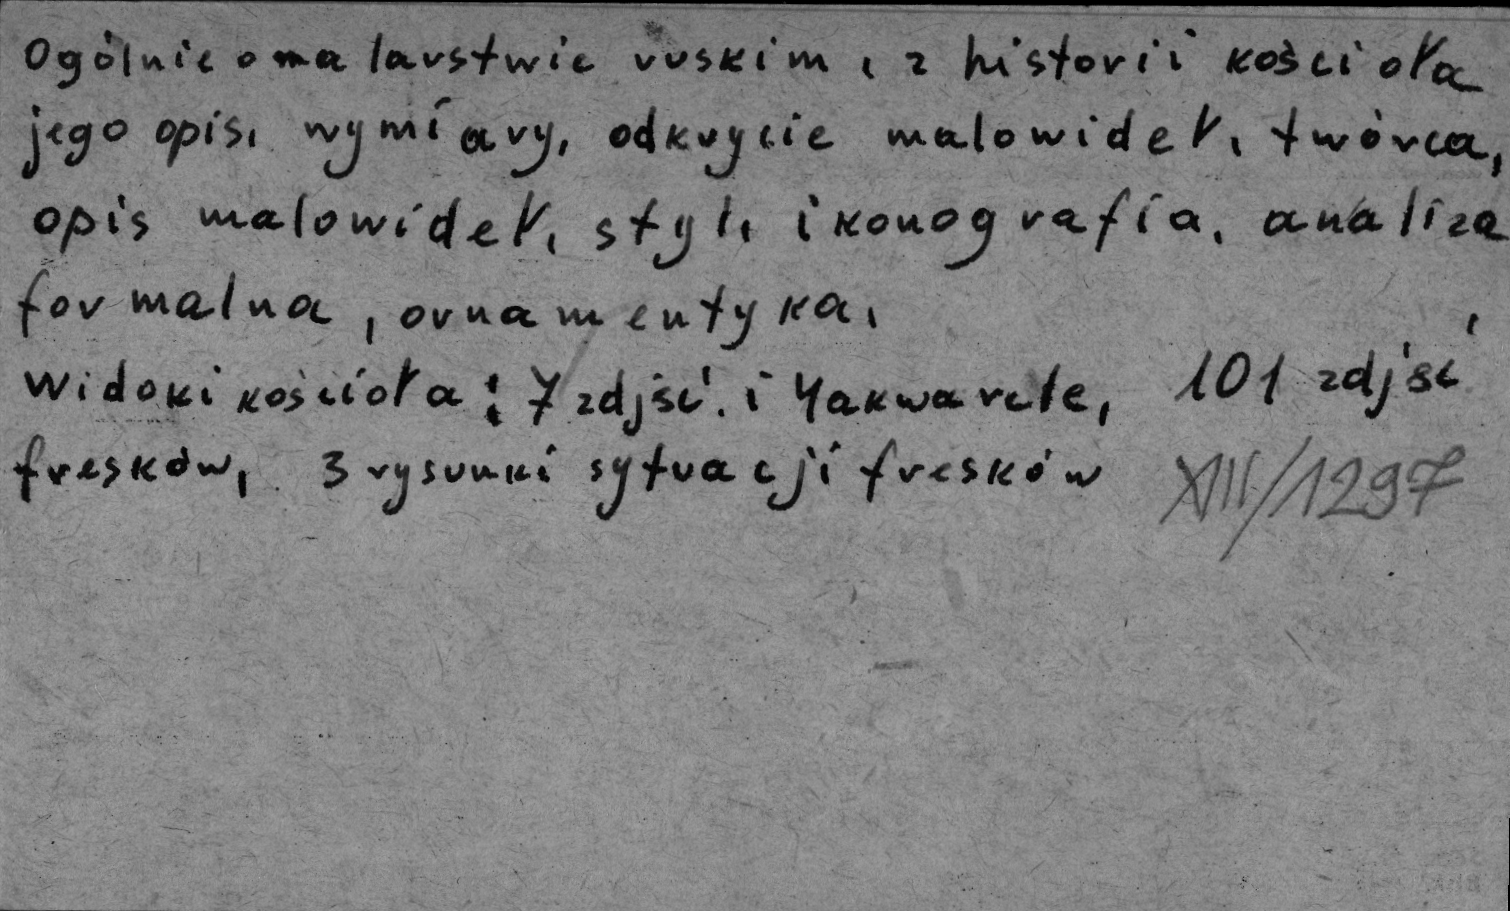 Ogólnie o malarstwie ruskim, z historii kościoła
jego opis, wymiary, odkrycie malowideł, twórca,
opis malowideł, styl, ikonografia, analiza
formalna, ornamentyka,
Widoki kościoła: 7 zdjęć. i 4 akwarele, 101 zdjęć
fresków, 3 rysunki sytuacji fresków XIII/1297